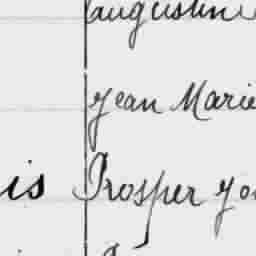 augustin
Jean Marie
is Prosper